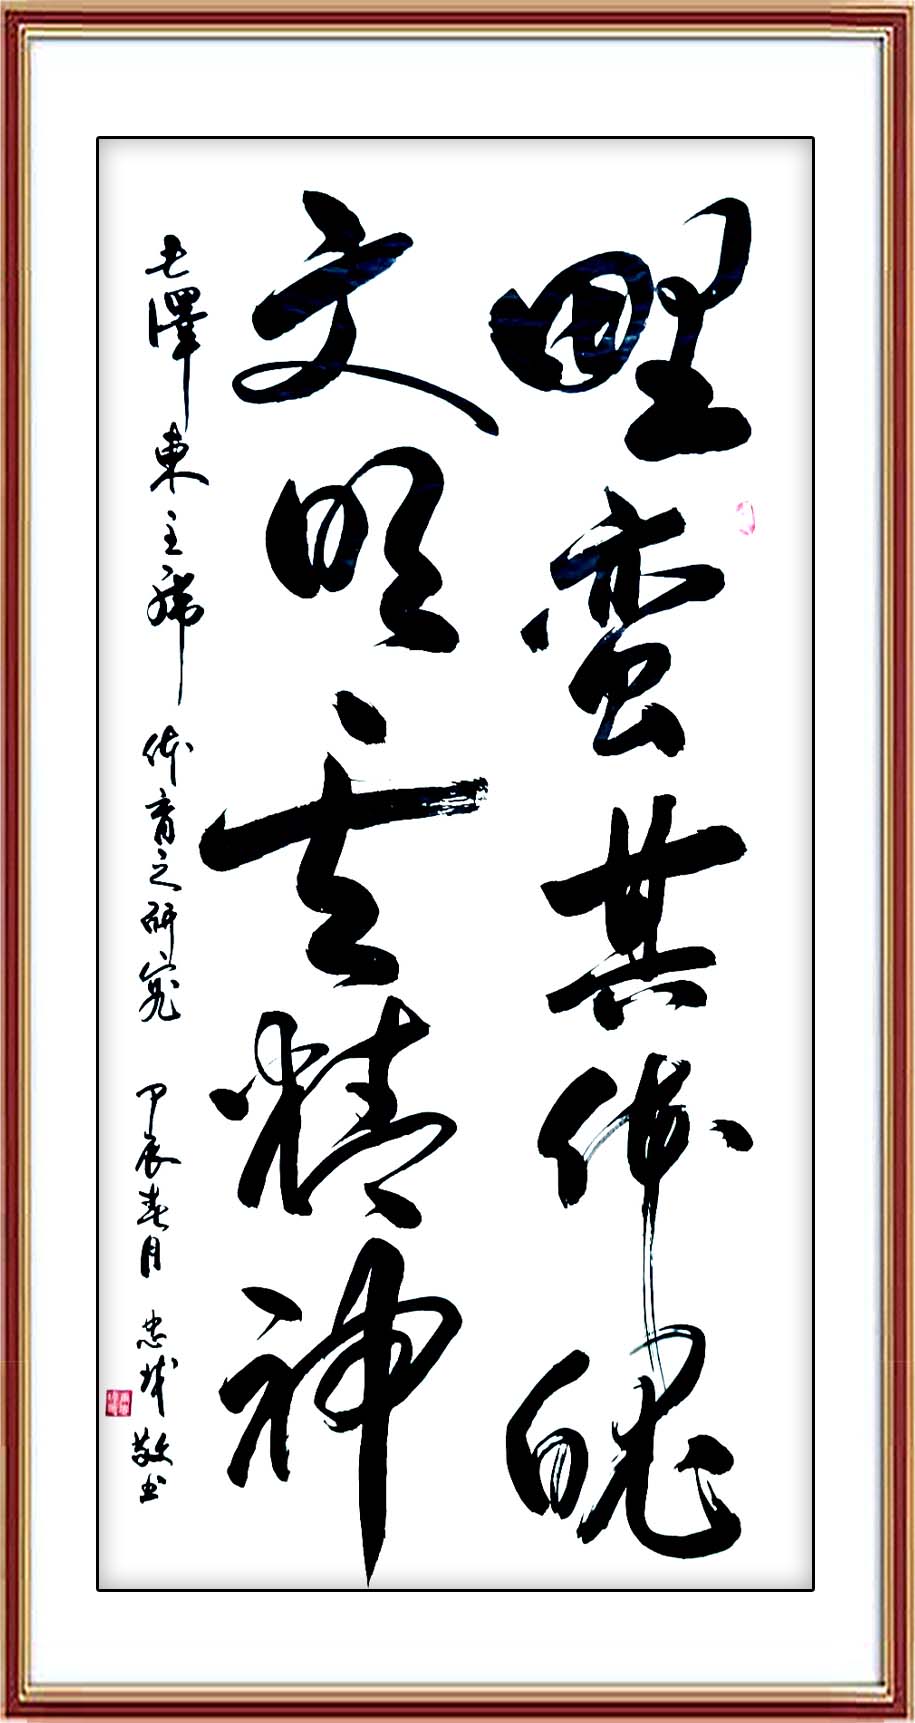 野蛮其体魄
文明其精神
毛澤东主席体育之研究 甲辰春月 忠城敬书